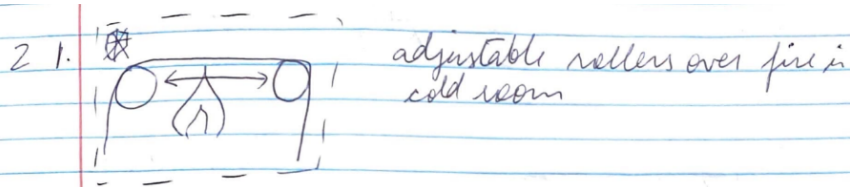 21. adjustable rollers over fire in
cold room